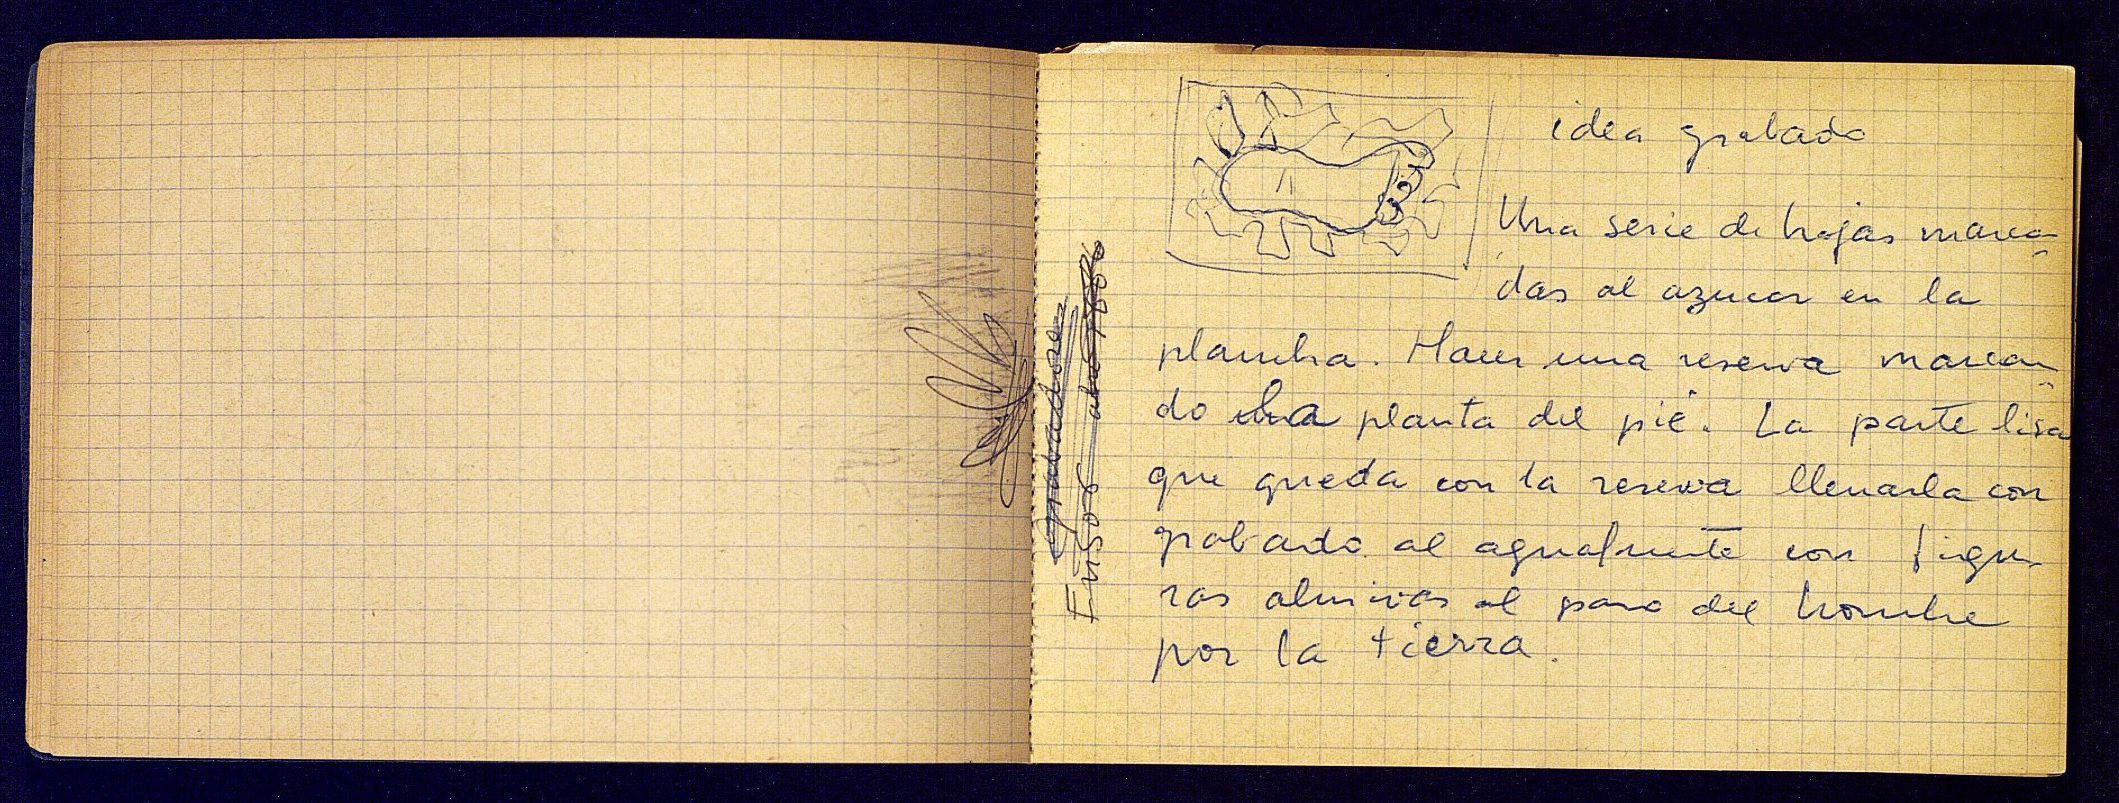 idea grabado
Una serie de hojas marca-
das al azucar en la
plancha. Hacer una reserva marcan-
do la planta del pié. La parte lisa
que queda con la reserva llenarla con
grabado al aguafuerte con figu-
ras alusivas al paso del hombre
por la tierra.
grabadores